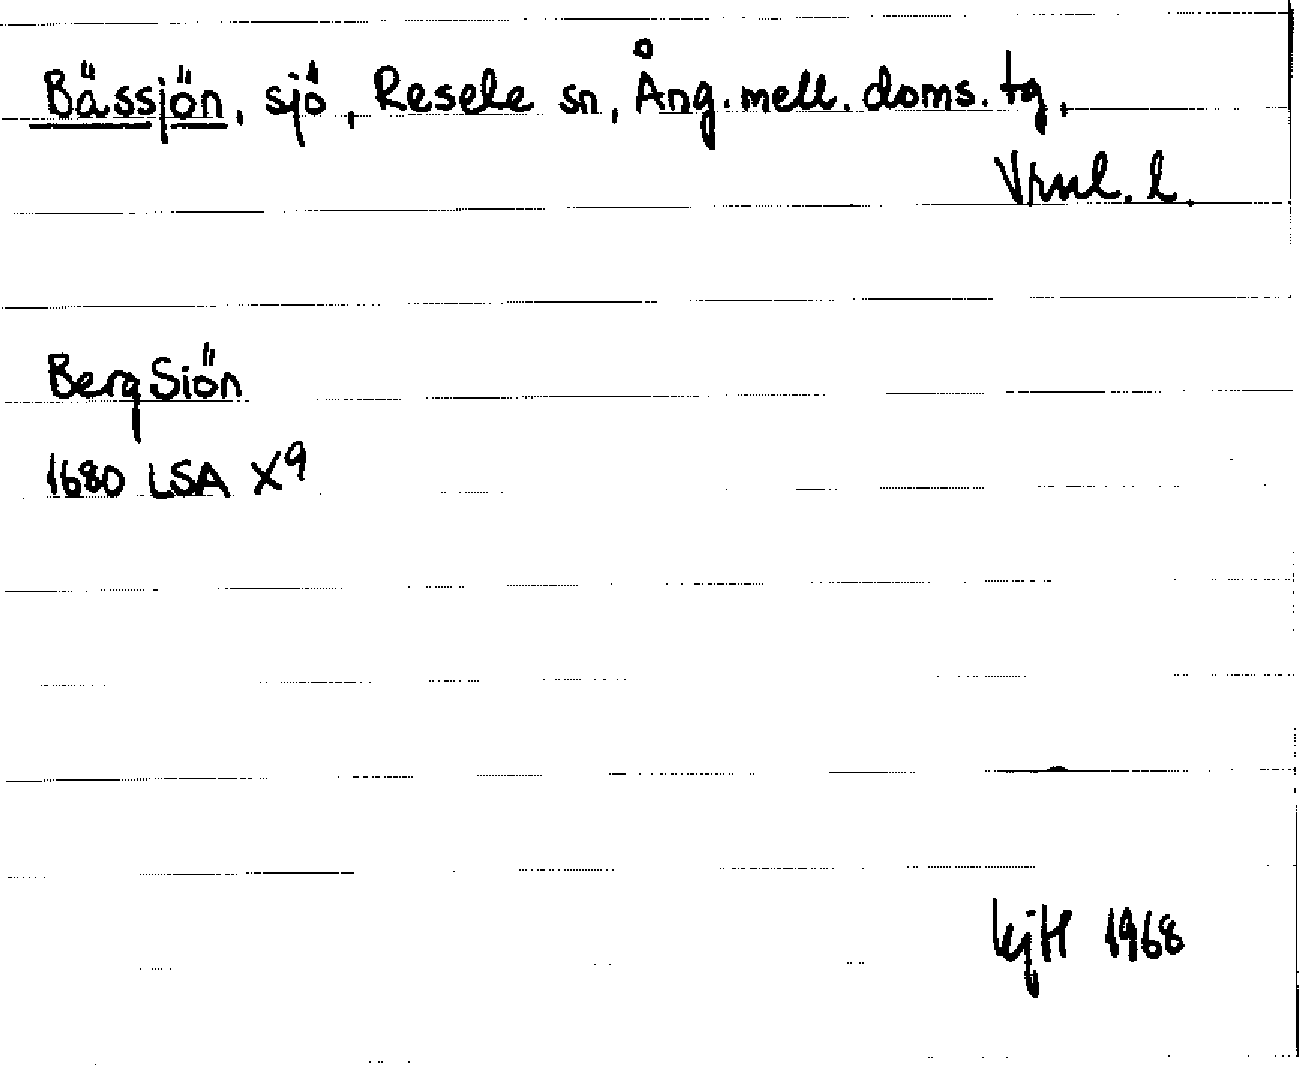 Bässjön, sjö, Resele sn, Ång. mell. doms. tg,
Vrnl. l.
BergSiön
1680 LSA X9
kjH 1968